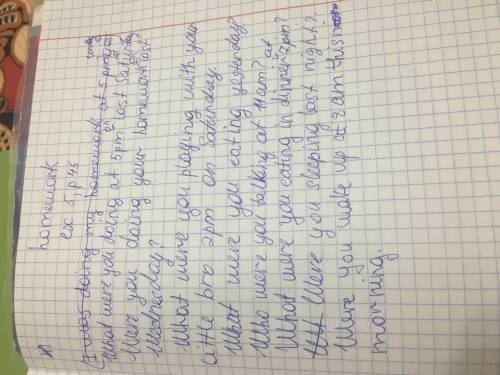 homework
ex 5, p 45
I was doing my homework at 5 pm
What were you doing at 5 pm on last Saturday
Were you doing your homework last
Wednesday?
What were you playing with your
little bro 2pm on Saturday.
What were you eating yesterday?
Who were you talking at 11 am? at
What were you eating in dinner 2pm?
Were you sleeping last night?
Were you wake up at 2 am this
morning.